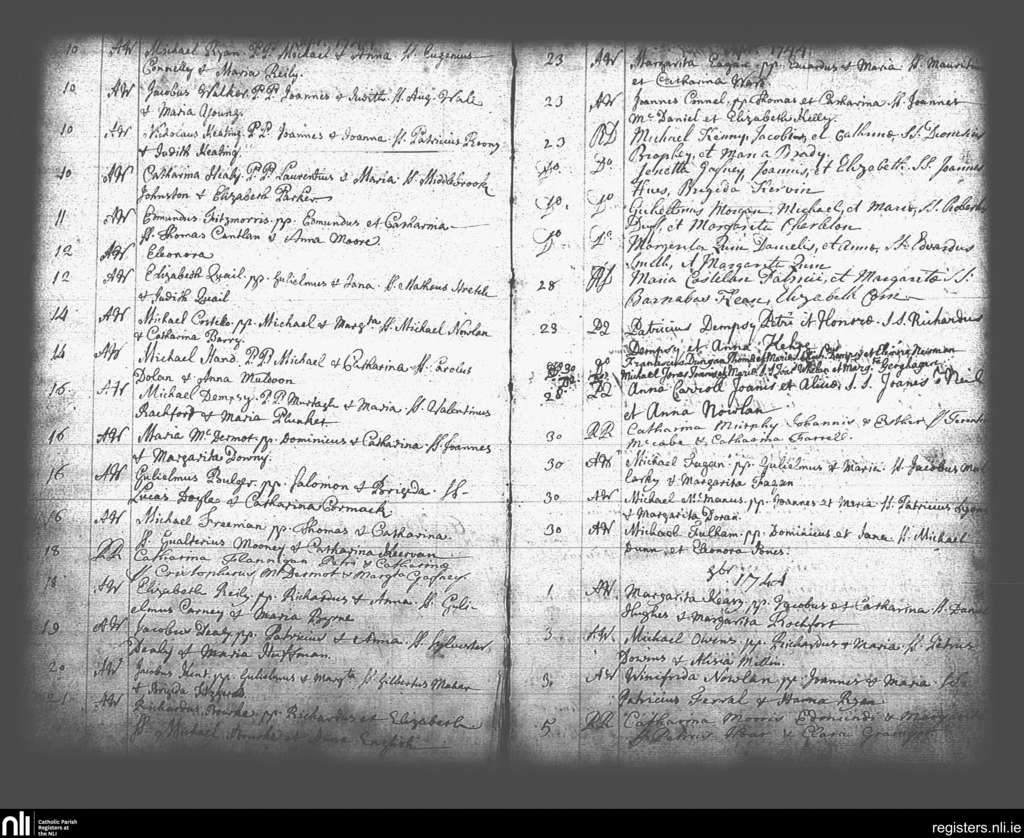 10 AW Michael Ryan. P.P. Michael & Anna. Sp. Eugenius
Connelly & Maria Reily.
10 AW Jacobus Walker. P.P. Joannes & Judith. Sp. Aug. Wale
& Maria Young.
10 AW Nikolaus Keating. P.P. Joannes & Joanna. Sp. Patricius
& Judith Keating.
10 AW Catharina Healy. P.P. Laurentius & Maria. Sp. Middlbrook
Johnston & Elizabeth Parker
11 AW Edmundus Fitzmorris. pp. Edmundus et Catharina
Sp. Thomas Cantlan & Anna Moore.
12 AW Eleonora
12 AW Elizabeth Quail. pp. Gulielmus & Jana. Sp. Matheus
& Judith Quail
14 AW Michael Costello. pp. Michael & Margta Sp. Michael Nowlan
& Catharina Barry.
14 AW Michael Hand. P.P. Michael & Catharina. Sp. Carolus
Dolan & Anna Muldoon
16 AW Michael Dempsy. P.P. Murtagh & Maria. Sp. Valentinus
Rachford & Maria Plunket
16 AW Maria McDermot. pp. Dominicus & Catharina. Sp. Joannes
& Margarita Downy.
16 AW Gulielmus Bulger. pp. Salomon & Brigida. Sp.
Lucas Doyle & Catharina Cormack
16 AW Michael Freeman pp. Thomas & Catharina.
Sp. Gualterius Mooney & Catharina
18 RR Catharina Flannigan Petri & Catharina
Sp. Cristopharus McDermot & Margta Gafney.
18 AW Elizabeth Reily. pp. Richardus & Anna. Sp. Guli-
elmus Carney & Maria Byrne
19 AW Jacobus Dealy. pp. Patricius & Anna. Sp. Sylvester
Dealy & Maria Huffman.
20 AW Jacobus Kent. pp. Gulielmus & Margta Sp. Gilbertus Maher
& Brigida
21 AW Richardus Rourke. pp. Richardus et Elizabeth
Sp. Michael Rourke et Anna English
1744
23 AW Margarita Eagan. pp. Eduardus & Maria. Sp. Mauritius
et Catharina Ward.
23 AW Joannes Connel. pp. Thomas et Catharina. Sp. Joannes
McDaniel et Elizabeth Kelly.
23 RD Michael Kenny, Jacobus, et Catharina SS. Dionesius
Brophey, et Maria Brady
Do. Do. Gafney, Joannis, et Elizabeth. SS. Joannes
Hues, Brigida Kervin
Do. Do Gulielmus Morgan, Michael, et Maria, SS. Robertus
Duff, et Margarita Charelon
Do Do Margerita Quin Danielis, et Anna, SS. Edvardus
Smith, et Margarita Quin
28 Maria Costelare Patricii, et Margarita SS.
Barnabas Keane, Elizabeth
28 Patricius Dempsy Petri et Honora. S.S. Richardus
Dempsy et Anna
Do Franciscus Dungan Thomæ et Mariæ
Michael Jones Joannis et Maria S.S. et Marg. Geoghagan
28 Anna Carroll Joanis et Alicia, S.S. Joanes O Neil
et Anna Nowlan
30 RR Catharina Murphy Johannis & Esther Sp.
McCabe & Catharina Farrell.
30 AW Michael Fagan. pp. Gulielmus & Maria. Sp. Jacobus
& Margarita Fagan
30 AW Michael McManus. pp. Joannes et Maria. Sp. Patricius
& Margarita Doran.
30 AW Michael Fulham. pp. Dominicus et Jana. Sp. Michael
Dunn et Eleonora Jones.
9br
1744
1 AW Margarita Keary. pp. Jacobus et Catharina. Sp. Daniel
Hughes & Margarita Rochfort
3 AW Michael Owens. pp. Richardus & Maria. Sp. Patrius
& Alicia
3 AW Winifrida Nowlan. pp. Joannes & Maria. Sp.
Patricius Ferral & Hanna Ryan
5 RR Catharina Morris Edmundi & Margarita
Sp. Petrus & Clara
nli Catholic Parish
Registers at
the NLI
registers.nli.ie